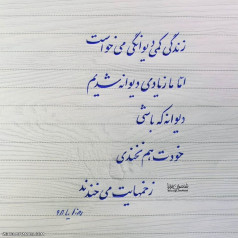 زندگی کمی دیوانگی می خواست
اما ما زیادی دیوانه شدیم
دیوانه که باشی
خودت هم نخندی
زخمهایت می خندند